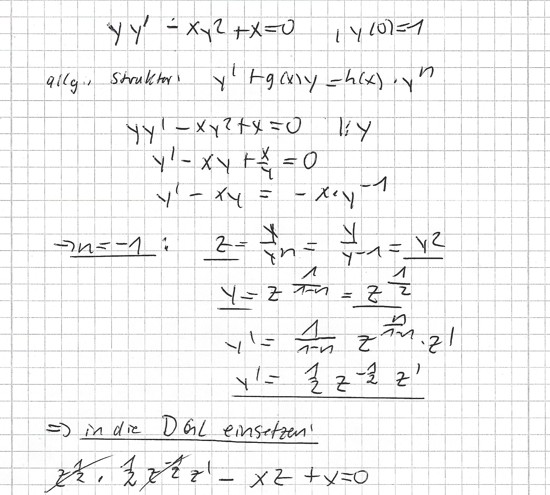 yy' - xy² + x = 0 , y(0)=1
allg. Struktur: y' + g(x)y = h(x) · yⁿ
yy' - xy² + x = 0 |:y
y' - xy + x/y = 0
y' - xy = - x · y⁻¹
→ n = -1 : z = y/yⁿ = y/y⁻¹ = y²
y = z^(1/(1-n)) = z^(1/2)
y' = 1/(1-n) z^(n/(1-n)) · z'
y' = 1/2 z^(-1/2) z'
⇒ in die DGL einsetzen:
z^(1/2) · 1/2 z^(-1/2) z' - xz + x = 0